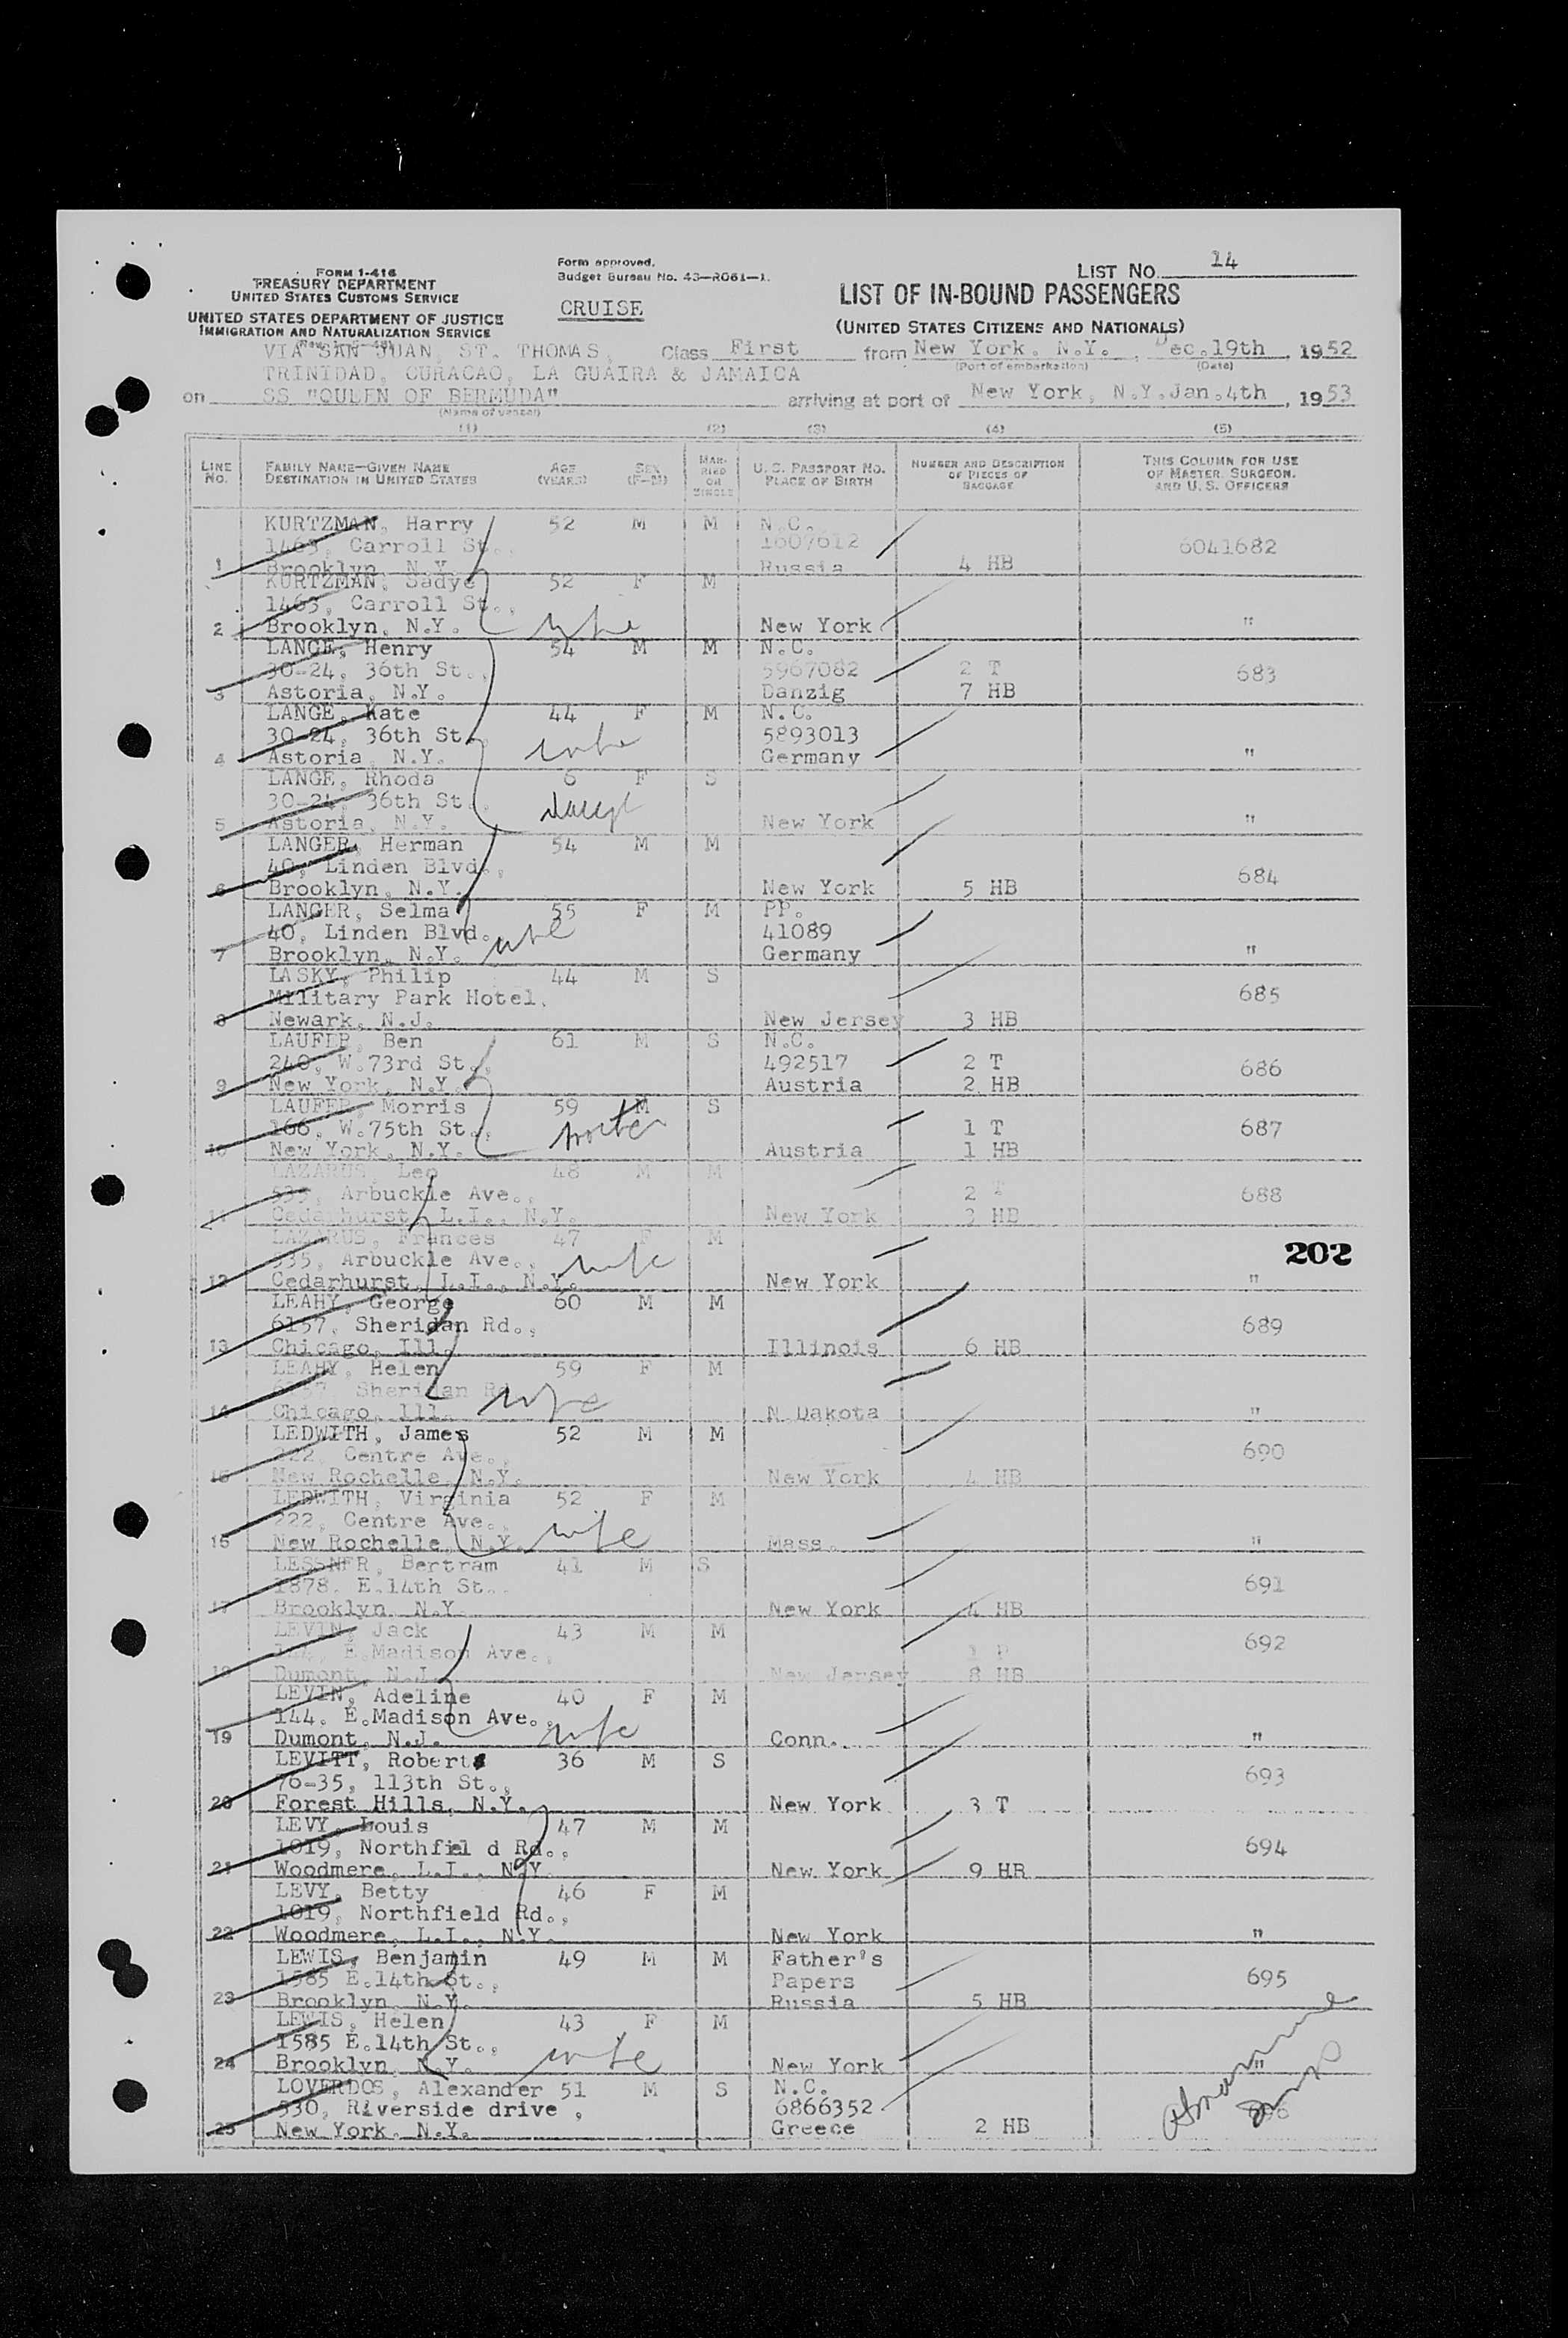 LIST NO. 14
FORM I-416
TREASURY DEPARTMENT
UNITED STATES CUSTOMS SERVICE
UNITED STATES DEPARTMENT OF JUSTICE
IMMIGRATION AND NATURALIZATION SERVICE
Form approved.
Budget Bureau No. 43—R061—1.
CRUISE
LIST OF IN-BOUND PASSENGERS
(UNITED STATES CITIZENS AND NATIONALS)
VIA SAN JUAN, ST. THOMAS, Class First from New York, N.Y., Dec.19th, 1952
(Port of embarkation) (Date)
TRINIDAD, CURACAO, LA GUAIRA & JAMAICA
on SS "QUEEN OF BERMUDA" arriving at port of New York, N.Y. Jan.4th, 1953
(Name of vessel)
(1) (2) (3) (4) (5)
LINE NO. FAMILY NAME—GIVEN NAME DESTINATION IN UNITED STATES AGE (YEARS) SEX (F—M) MARRIED OR SINGLE U. S. PASSPORT NO. PLACE OF BIRTH NUMBER AND DESCRIPTION OF PIECES OF BAGGAGE THIS COLUMN FOR USE OF MASTER, SURGEON, AND U. S. OFFICERS
KURTZMAN, Harry 52 M M N.C.
1463, Carroll St., 1607612 6041682
1 Brooklyn N.Y. Russia 4 HB
KURTZMAN, Sadye 52 F M
1463, Carroll St.,
2 Brooklyn, N.Y. wife New York "
LANGE, Henry 54 M M N.C.
30-24, 36th St., 5967082 2 T 683
3 Astoria, N.Y. Danzig 7 HB
LANGE, Kate 44 F M N.C.
30-24, 36th St. wife 5893013
4 Astoria, N.Y. Germany "
LANGE, Rhoda 6 F S
30-24, 36th St.
5 Astoria, N.Y. New York "
LANGER, Herman 54 M M
40, Linden Blvd., 684
6 Brooklyn, N.Y. New York 5 HB
LANGER, Selma 55 F M PP.
40, Linden Blvd. wife 41089
7 Brooklyn, N.Y. Germany "
LASKY, Philip 44 M S
Military Park Hotel, 685
8 Newark, N.J. New Jersey 3 HB
LAUFER, Ben 61 M S N.C.
240, W.73rd St., 492517 2 T 686
9 New York, N.Y. Austria 2 HB
LAUFER, Morris 59 M S
166, W.75th St., 1 T 687
10 New York, N.Y. Austria 1 HB
LAZARUS, Leo 48 M M
535, Arbuckle Ave., 2 T 688
11 Cedarhurst, L.I., N.Y. New York 3 HB
LAZARUS, Frances 47 F M
202
535, Arbuckle Ave., wife
12 Cedarhurst, L.I., N.Y. New York "
LEAHY, George 60 M M
6157, Sheridan Rd., 689
13 Chicago, Ill. Illinois 6 HB
LEAHY, Helen 59 F M
6157, Sheridan Rd. wife
14 Chicago, Ill. N Dakota "
LEDWITH, James 52 M M
222, Centre Ave., 690
15 New Rochelle, N.Y. New York 4 HB
LEDWITH, Virginia 52 F M
222, Centre Ave., wife
16 New Rochelle, N.Y. Mass. "
LESSNER, Bertram 41 M S
1878, E.14th St., 691
17 Brooklyn, N.Y. New York 4 HB
LEVIN, Jack 43 M M
144, E.Madison Ave., 1 P 692
18 Dumont, N.J. New Jersey 8 HB
LEVIN, Adeline 40 F M
144. E.Madison Ave., wife
19 Dumont, N.J. Conn. "
LEVITT, Robert 36 M S
76-35, 113th St., 693
20 Forest Hills, N.Y. New York 3 T
LEVY, Louis 47 M M
1019, Northfiel d Rd., 694
21 Woodmere, L.I., N.Y. New York 9 HB
LEVY, Betty 46 F M
1019, Northfield Rd.,
22 Woodmere, L.I., N.Y. New York "
LEWIS, Benjamin 49 M M Father's
1585 E.14th St., Papers 695
23 Brooklyn, N.Y. Russia 5 HB
LEWIS, Helen 43 F M
1585 E.14th St., wife
24 Brooklyn, N.Y. New York "
LOVERDOS, Alexander 51 M S N.C.
530, Riverside drive , 6866352 696
25 New York, N.Y. Greece 2 HB